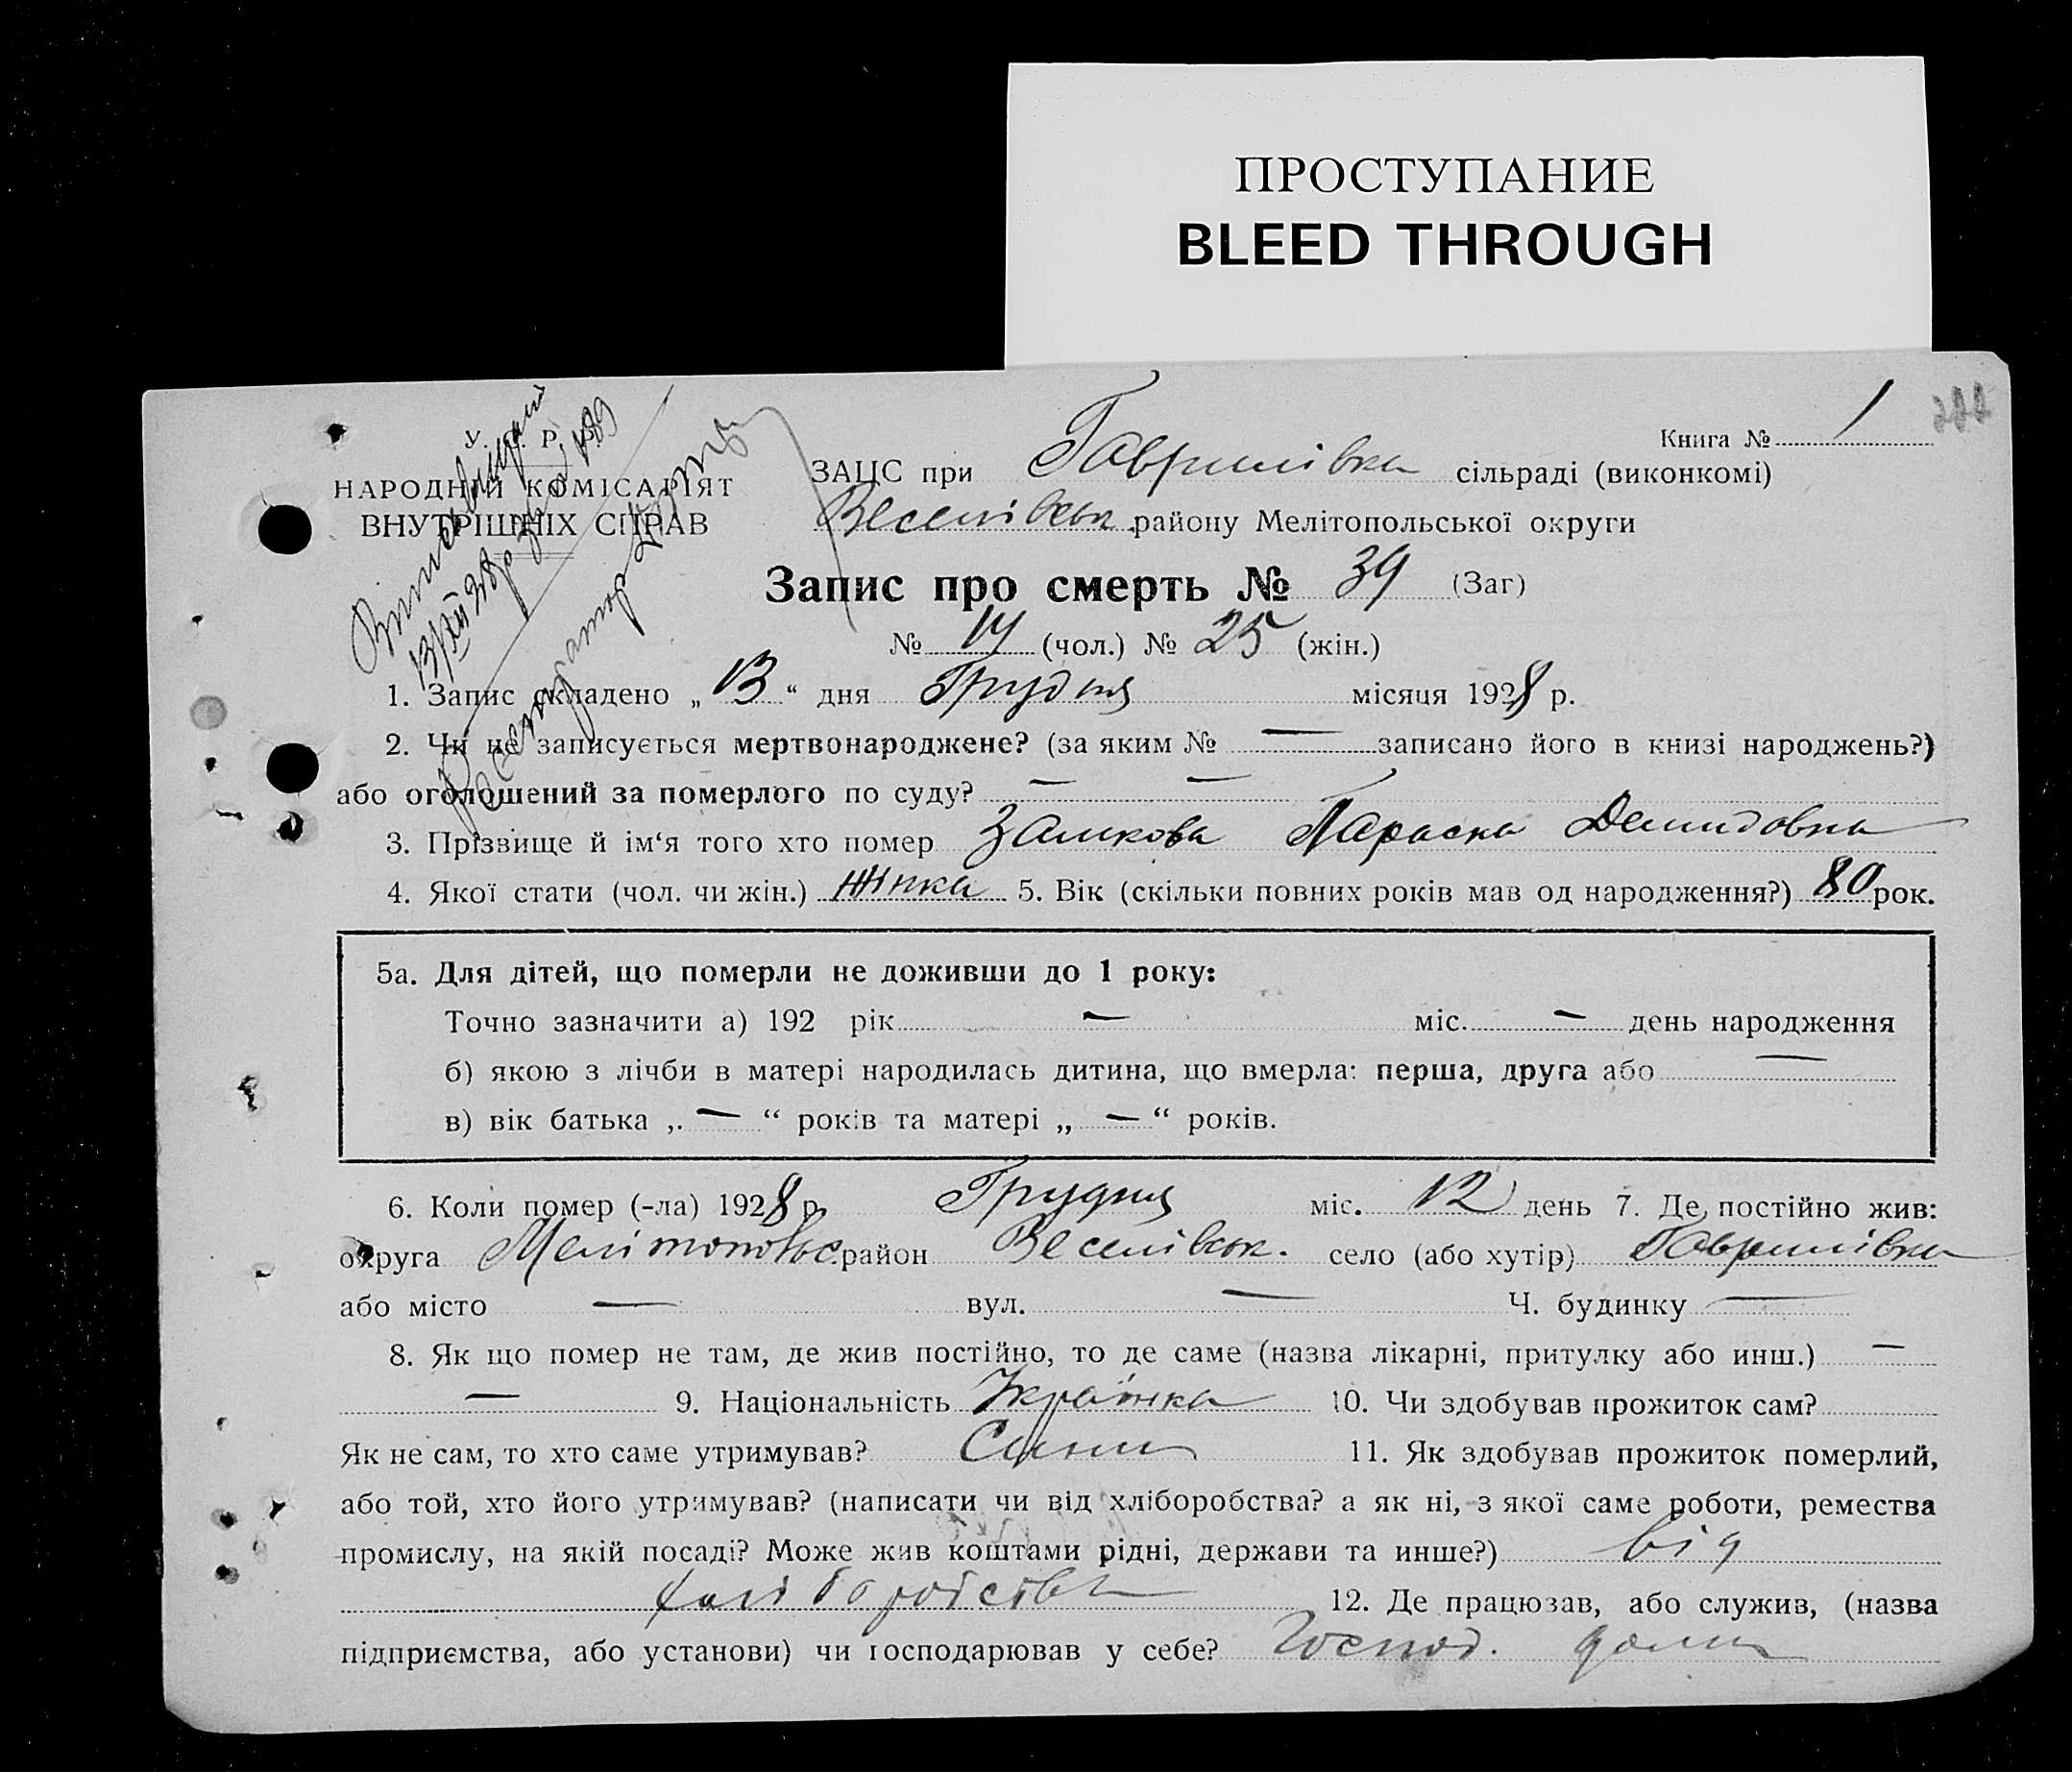 ПРОСТУПАНИЕ
BLEED THROUGH
Книга № 1
У. С. Р. Р.
НАРОДНІЙ КОМІСАРІЯТ
ВНУТРІШНІХ СПРАВ
ЗАЦС при Гаврилівка сільраді (виконкомі)
Веселівськ району Мелітопольської округи
Запис про смерть № 39 (Заг)
№ 14 (чол.) № 25 (жін.)
1. Запис складено „ 13 “ дня Грудня місяця 1928 р.
2. Чи не записується мертвонароджене? (за яким № — записано його в книзі народжень?)
або оголошений за померлого по суду? — —
3. Прізвище й ім‘я того хто помер Замкова Параска Демидовна
4. Якої стати (чол. чи жін.) жінка 5. Вік (скільки повних років мав од народження?) 80 рок.
5а. Для дітей, що померли не доживши до 1 року:
Точно зазначити а) 192 рік — міс. — день народження
б) якою з лічби в матері народилась дитина, що вмерла: перша, друга або —
в) вік батька „ — “ років та матері „ — “ років.
6. Коли помер (-ла) 1928 р. Грудня міс. 12 день 7. Де постійно жив:
округа Мелітопольс. район Веселівськ. село (або хутір) Гаврилівка
або місто — вул. — Ч. будинку —
8. Як що помер не там, де жив постійно, то де саме (назва лікарні, притулку або инш.) —
— 9. Національність Українка 10. Чи здобував прожиток сам?
Як не сам, то хто саме утримував? Сини 11. Як здобував прожиток померлий,
або той, хто його утримував? (написати чи від хліборобства? а як ні, з якої саме роботи, ремества
промислу, на якій посаді? Може жив коштами рідні, держави та инше?) від
хліборобства 12. Де працював, або служив, (назва
підприємства, або установи) чи господарював у себе? Господ. дома